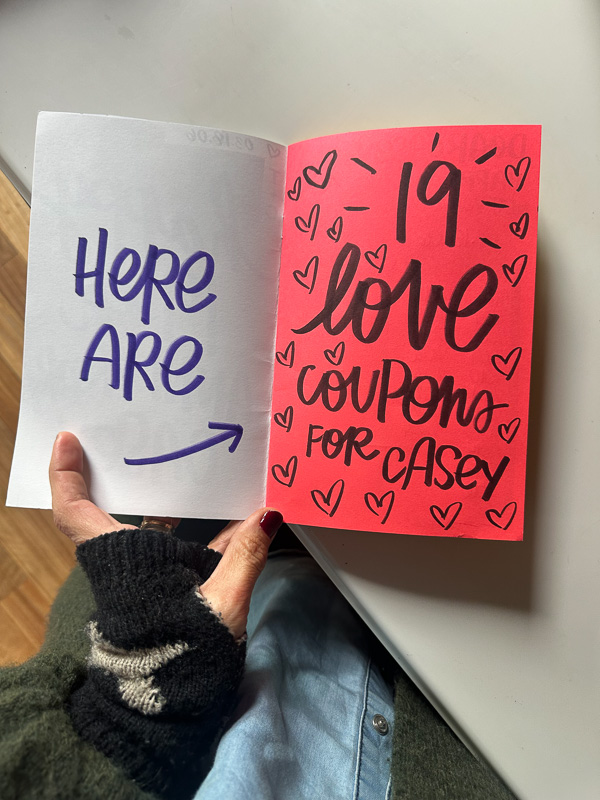 HERE
ARE
19
love
COUPONS
FOR CASEY